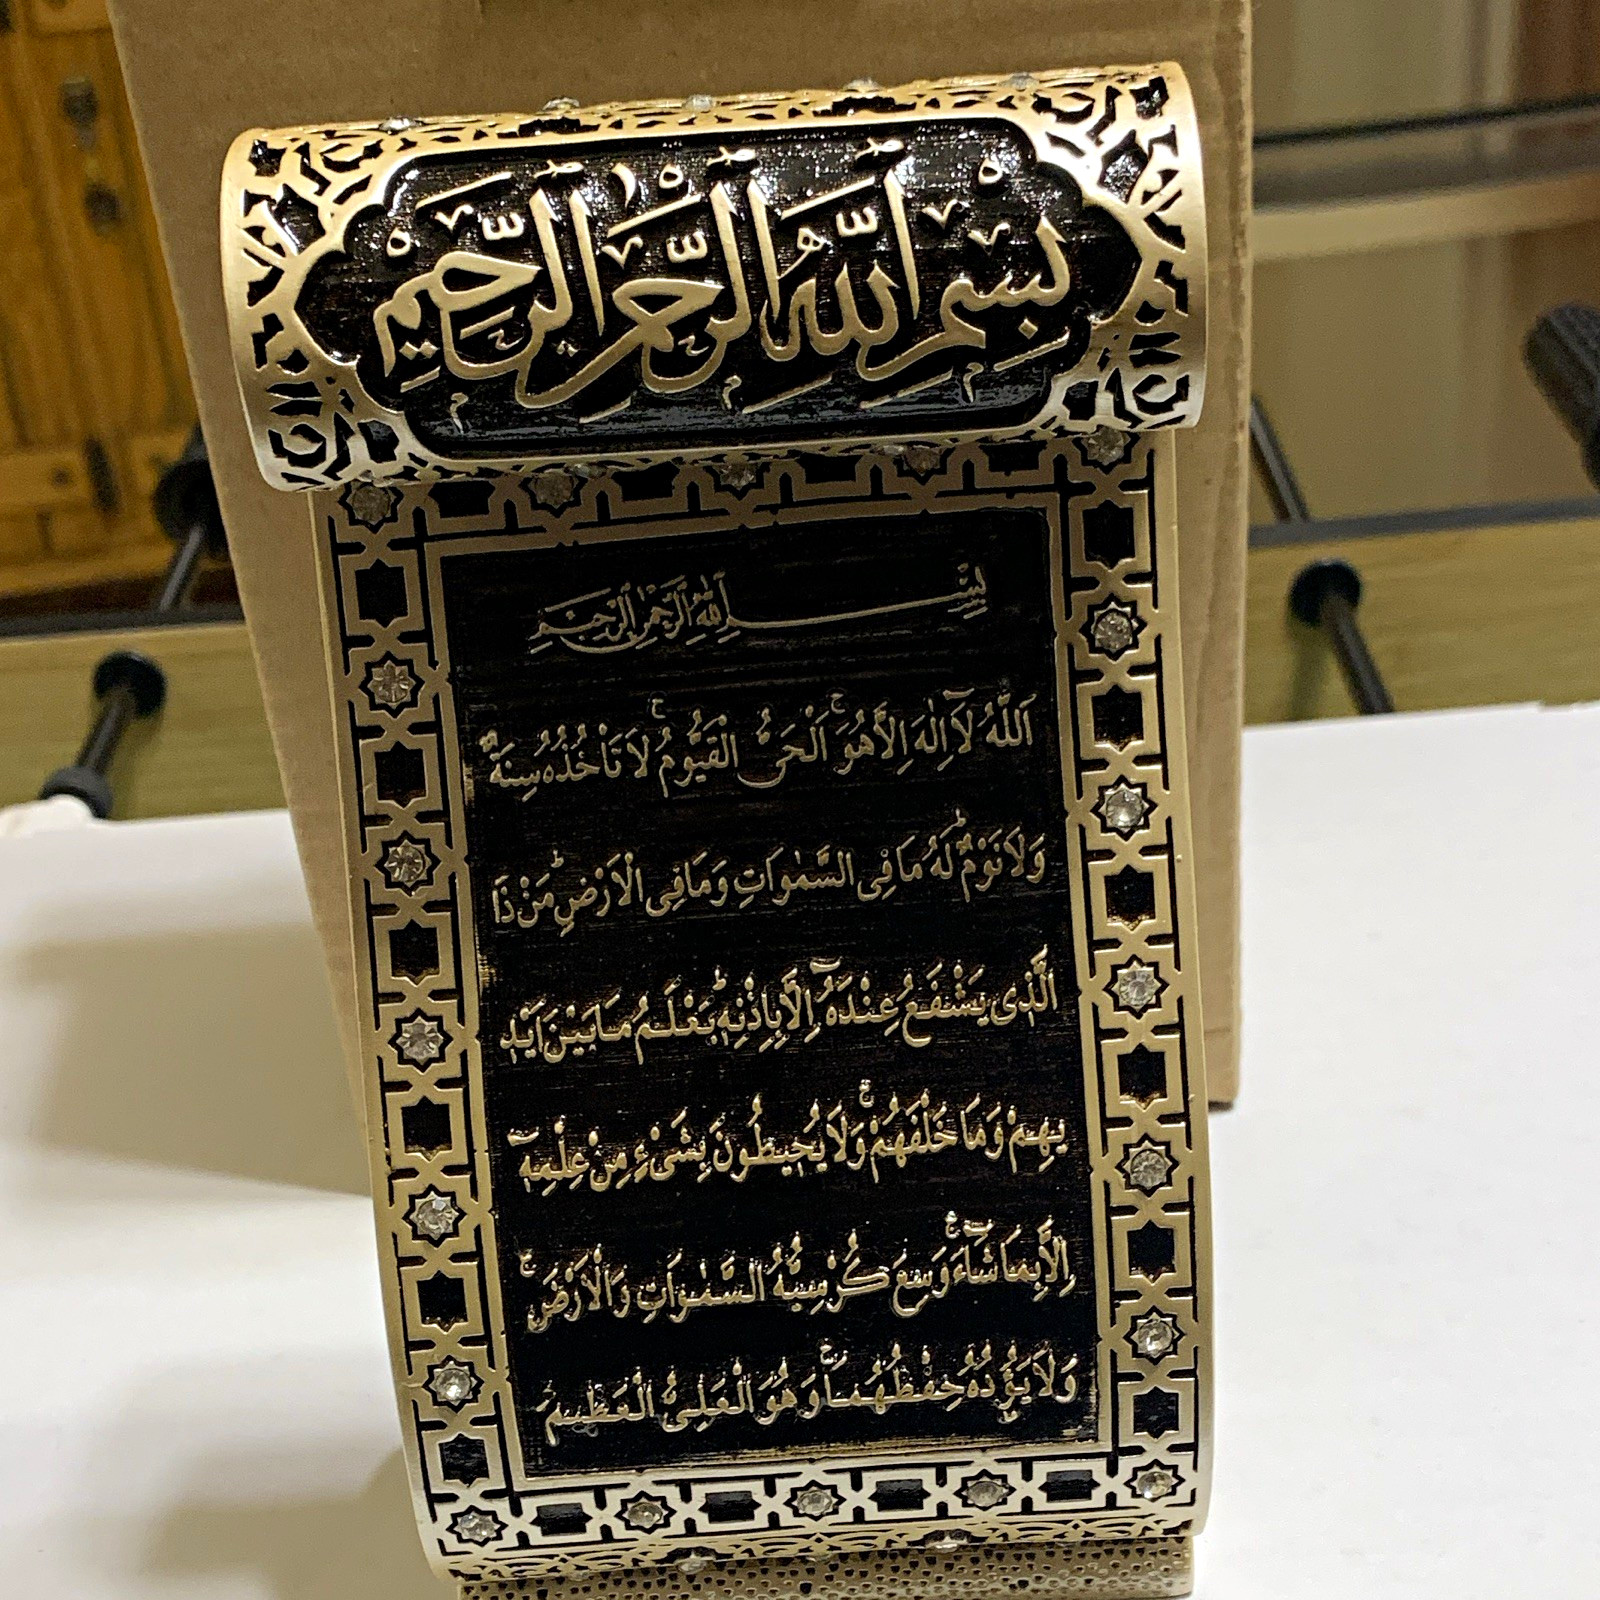 بِسْمِ ٱللَّهِ ٱلرَّحْمَٰنِ ٱلرَّحِيمِ
بِسْمِ ٱللَّهِ ٱلرَّحْمَٰنِ ٱلرَّحِيمِ
اَللّٰهُ لَٓا اِلٰهَ اِلَّا هُوَۚ اَلْحَىُّ الْقَيُّومُۚ لَا تَاْخُذُهُ سِنَةٌ
وَلَا نَوْمٌۜ لَهُ مَا فِى السَّمٰوَاتِ وَمَا فِى الْاَرْضِۜ مَنْ ذَا
الَّذٖى يَشْفَعُ عِنْدَهُٓ اِلَّا بِاِذْنِهٖۜ يَعْلَمُ مَا بَيْنَ اَيْدٖ
يهِمْ وَمَا خَلْفَهُمْۚ وَلَا يُحٖيطُونَ بِشَىْءٍ مِنْ عِلْمِهٖٓ
اِلَّا بِمَا شَٓاءَۚ وَسِعَ كُرْسِيُّهُ السَّمٰوَاتِ وَالْاَرْضَۚ
وَلَا يَؤُدُهُ حِفْظُهُمَاۚ وَهُوَ الْعَلِىُّ الْعَظٖيمُ